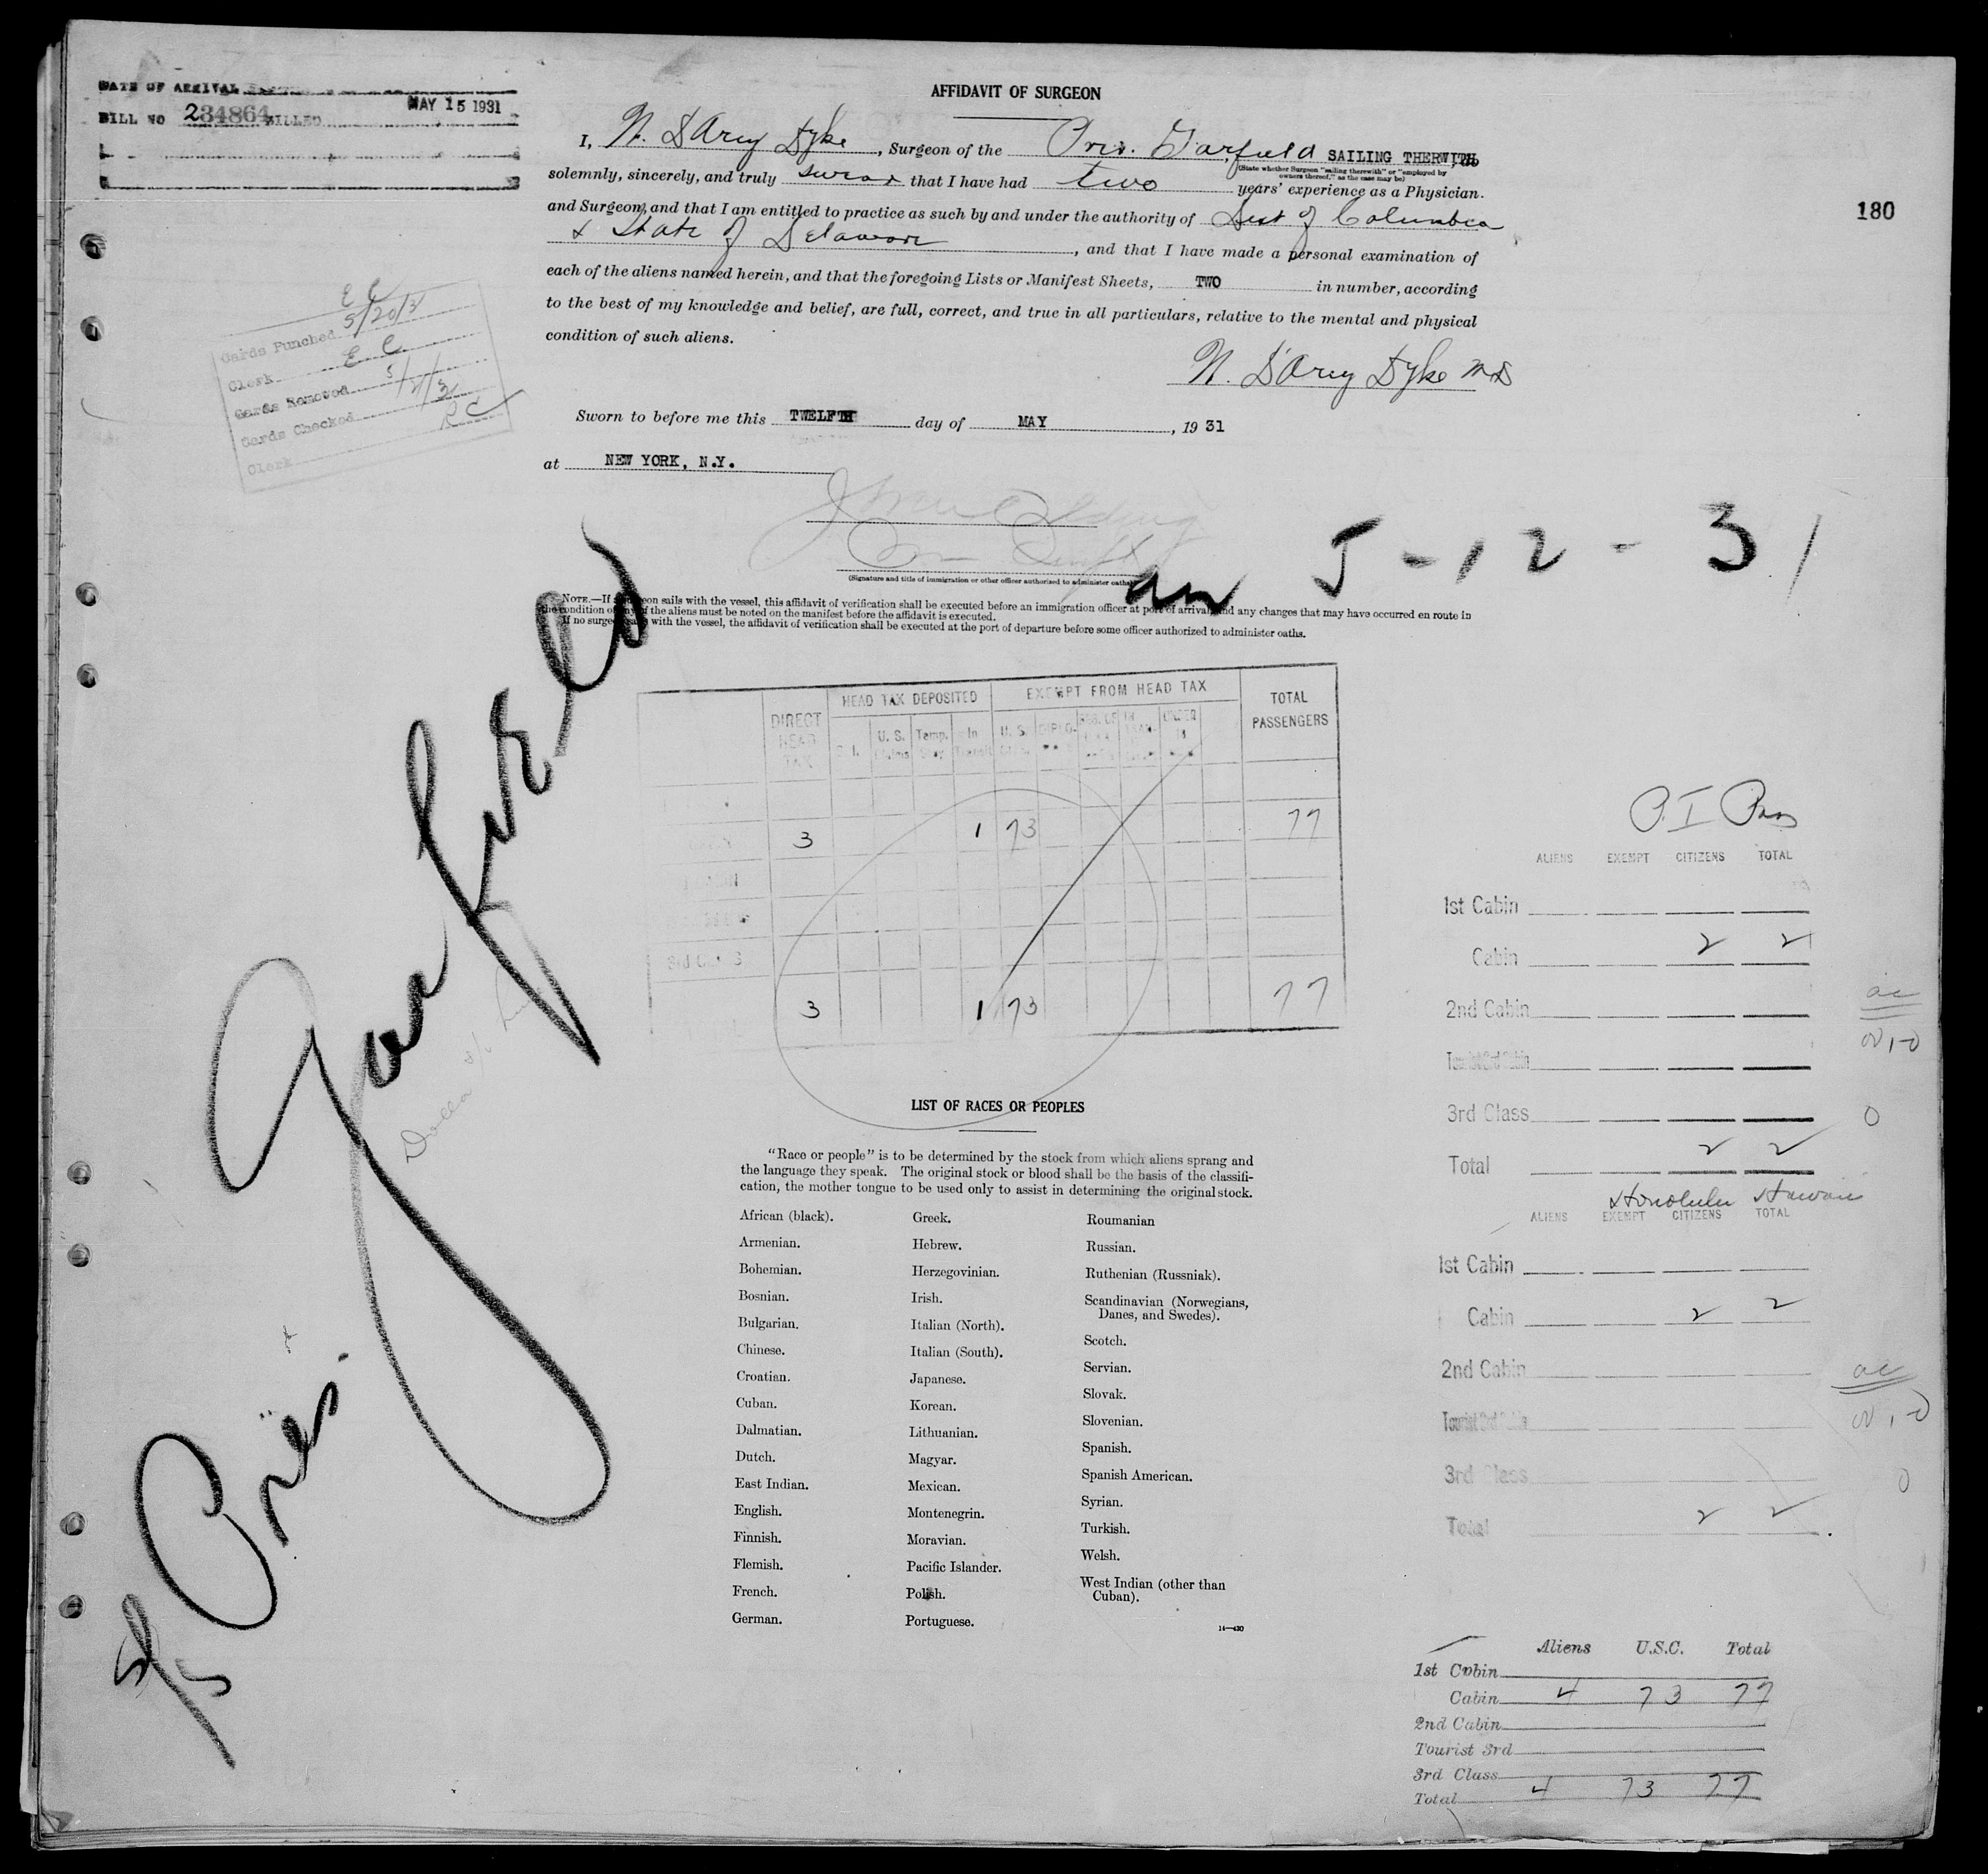 DATE OF ARRIVAL
MAY 15 1931
BILL NO 234864 BILLED
180
AFFIDAVIT OF SURGEON
I, N. D'Arcy Dyke, Surgeon of the Pres. Garfield SAILING THERWITH, do
(State whether Surgeon "sailing therewith" or "employed by
owners thereof," as the case may be)
solemnly, sincerely, and truly swear that I have had two years' experience as a Physician
and Surgeon, and that I am entitled to practice as such by and under the authority of Dist of Columbia
& State of Delaware, and that I have made a personal examination of
each of the aliens named herein, and that the foregoing Lists or Manifest Sheets, TWO in number, according
to the best of my knowledge and belief, are full, correct, and true in all particulars, relative to the mental and physical
condition of such aliens.
N. D'Arcy Dyke M.D
Sworn to before me this TWELFTH day of MAY, 1931
at NEW YORK, N.Y.
E C
Cards Punched 5/20/3
Clerk E C
Cards Removed 5/2/3
Cards Checked
Clerk R C
5-12-31
(Signature and title of immigration or other officer authorized to administer oaths)
NOTE.—If surgeon sails with the vessel, this affidavit of verification shall be executed before an immigration officer at port of arrival and any changes that may have occurred en route in
the condition of any of the aliens must be noted on the manifest before the affidavit is executed.
If no surgeon sails with the vessel, the affidavit of verification shall be executed at the port of departure before some officer authorized to administer oaths.
DIRECT HEAD TAX
HEAD TAX DEPOSITED
EXEMPT FROM HEAD TAX
TOTAL PASSENGERS
U. S. Temp. In Transit U. S. DIPLO- UNDER 16
3 1 73 77
3rd CLASS
3 1 73 77
Pres. Garfield
5/15
P. I Pass
ALIENS EXEMPT CITIZENS TOTAL
1st Cabin
Cabin 2 2
2nd Cabin
Tourist 3rd Cabin
3rd Class 0
Total 2 2
Honolulu Hawaii
ALIENS EXEMPT CITIZENS TOTAL
1st Cabin
Cabin 2 2
2nd Cabin
Tourist 3rd Cabin
3rd Class 0
Total 2 2
LIST OF RACES OR PEOPLES
"Race or people" is to be determined by the stock from which aliens sprang and
the language they speak. The original stock or blood shall be the basis of the classifi-
cation, the mother tongue to be used only to assist in determining the original stock.
African (black).
Armenian.
Bohemian.
Bosnian.
Bulgarian.
Chinese.
Croatian.
Cuban.
Dalmatian.
Dutch.
East Indian.
English.
Finnish.
Flemish.
French.
German.
Greek.
Hebrew.
Herzegovinian.
Irish.
Italian (North).
Italian (South).
Japanese.
Korean.
Lithuanian.
Magyar.
Mexican.
Montenegrin.
Moravian.
Pacific Islander.
Polish.
Portuguese.
Roumanian
Russian.
Ruthenian (Russniak).
Scandinavian (Norwegians,
Danes, and Swedes).
Scotch.
Servian.
Slovak.
Slovenian.
Spanish.
Spanish American.
Syrian.
Turkish.
Welsh.
West Indian (other than
Cuban).
14—430
Aliens U.S.C. Total
1st Cabin
Cabin 4 73 77
2nd Cabin
Tourist 3rd
3rd Class
Total 4 73 77